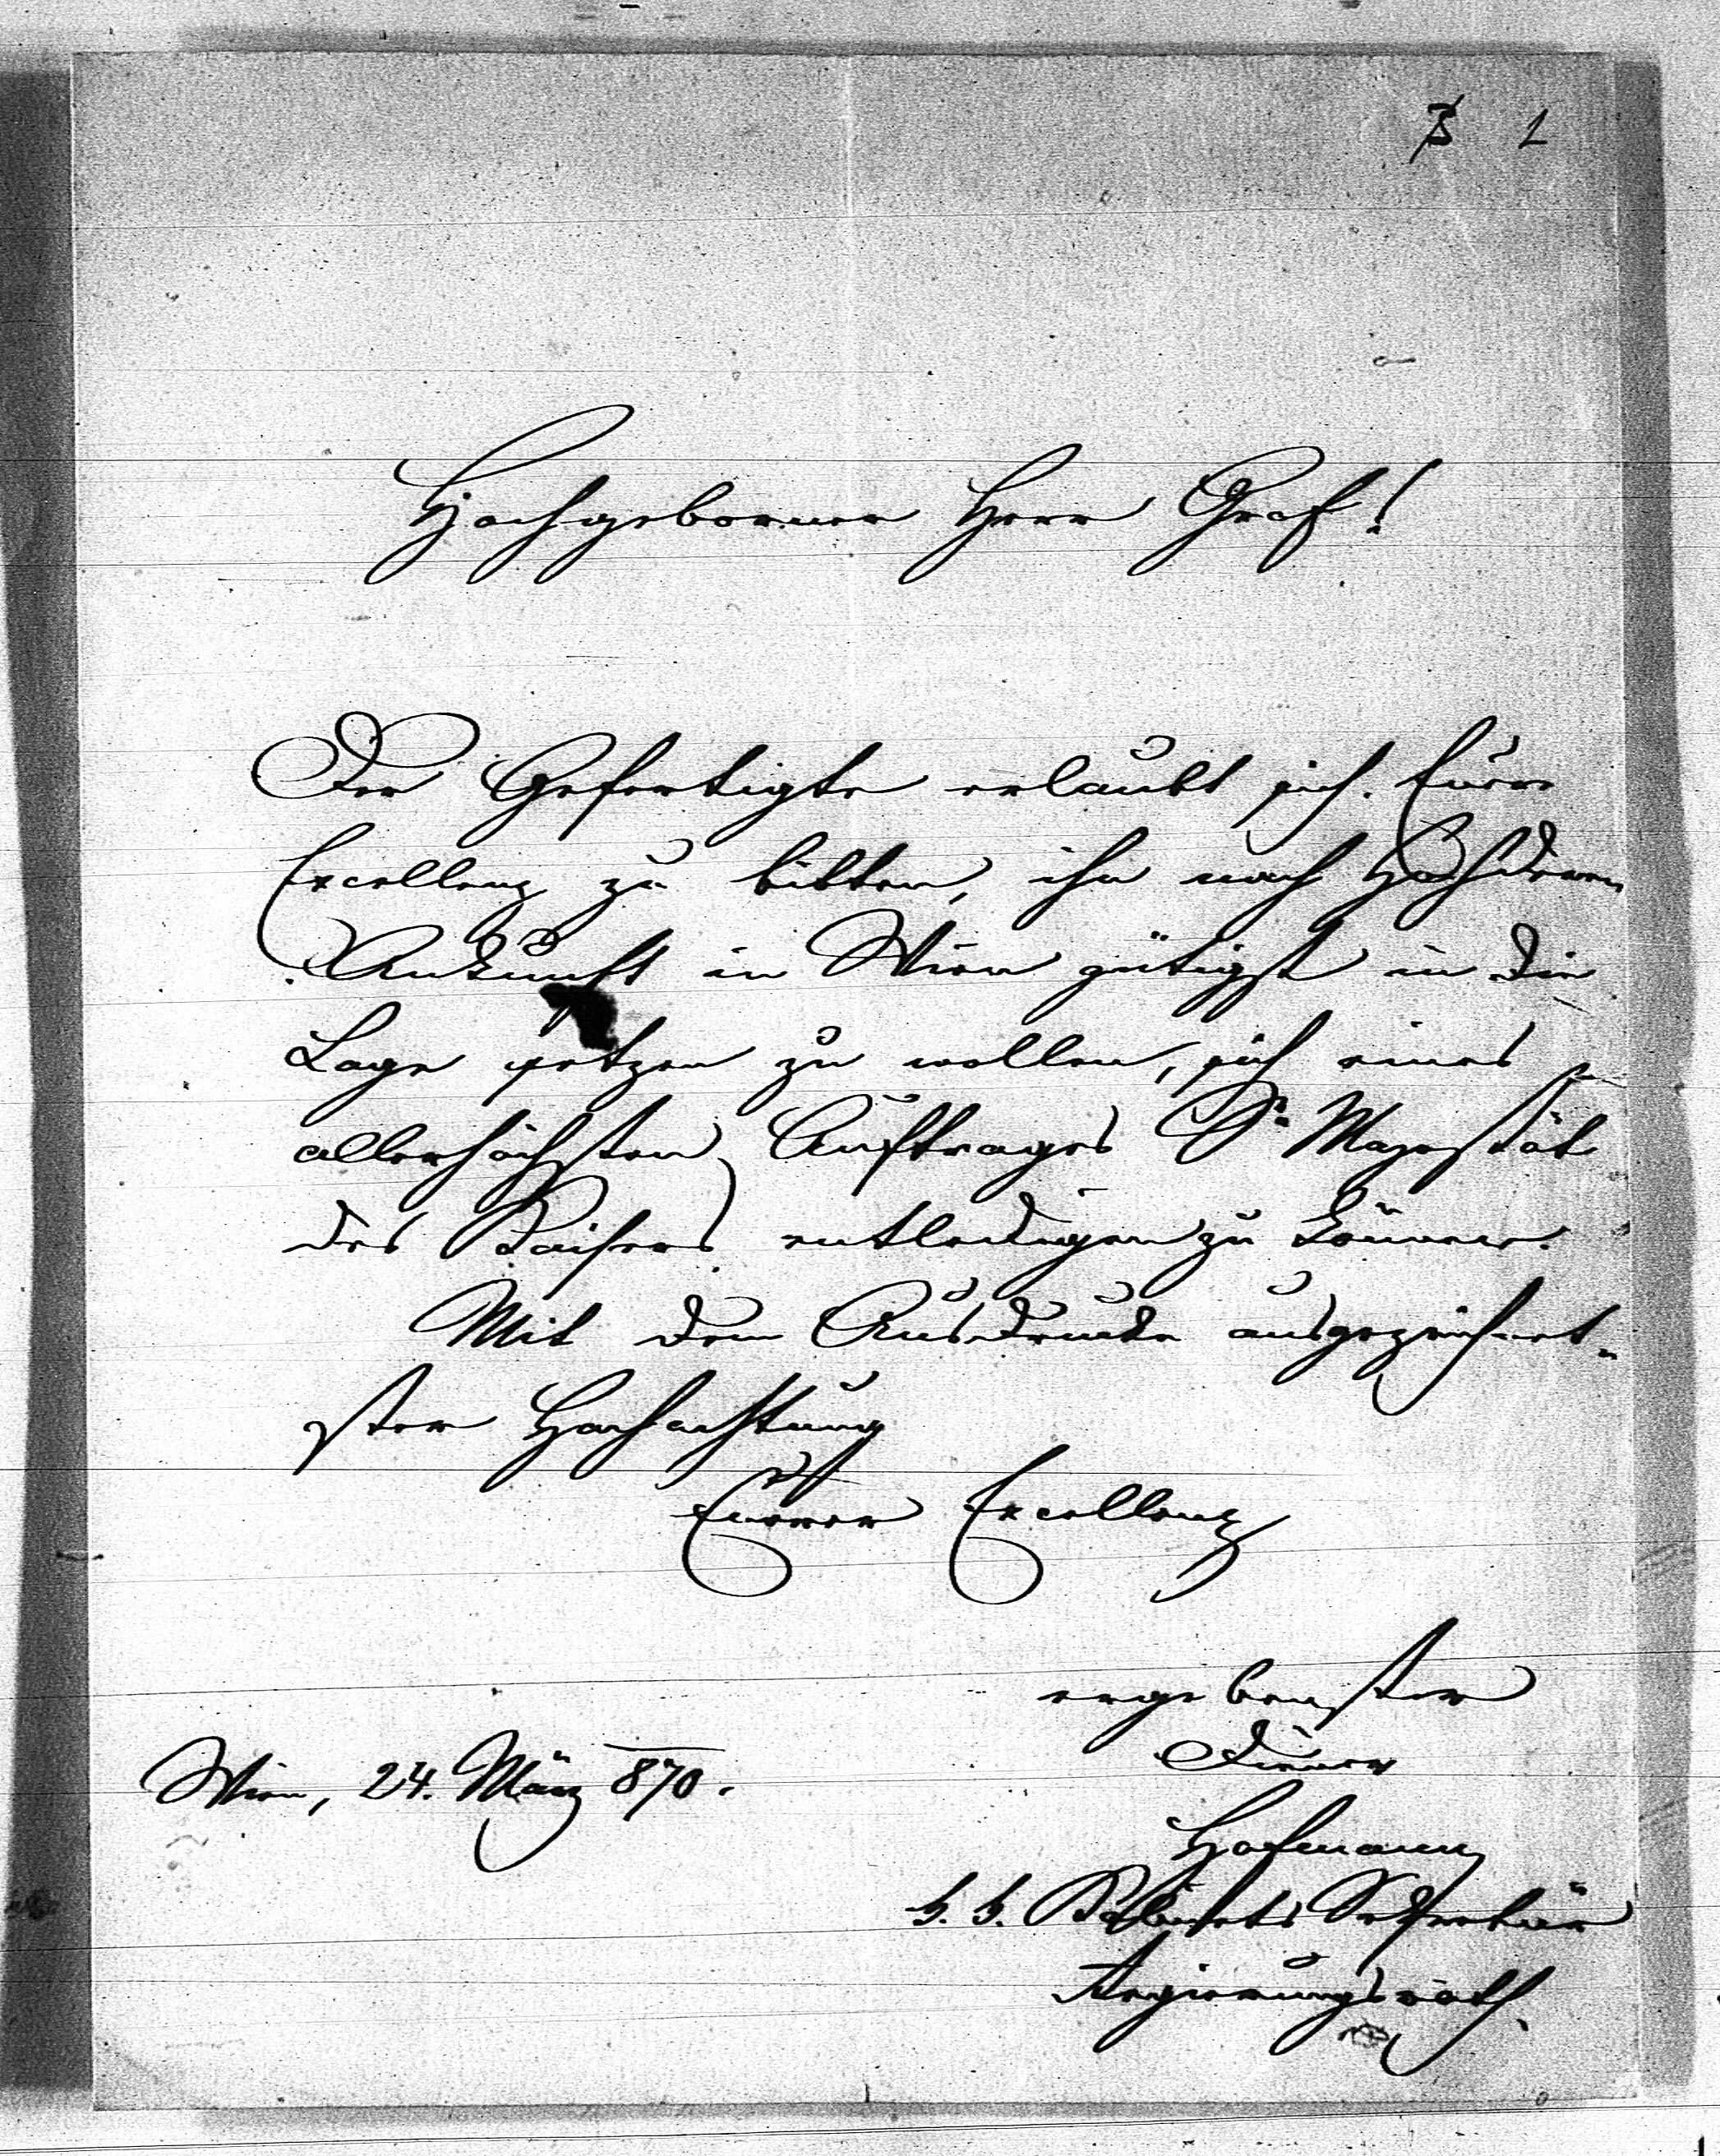 1
Hochgeborner Herr Graf!
Der Gefertigte erlaubt sich Eure
Excellenz zu bitten, ihn nach Hochderen
Ankunft in Wien gütigst in die
Lage setzen zu wollen, sich eines
allerhöchsten Auftrages Sr Majestät
des Kaisers entledigen zu können.
Mit dem Ausdrucke ausgezeichnet-
ster Hochachtung
Eurer Excellenz
ergebenster
Diener
Wien, 24. März 870.
Hofmann
k. k. Kabinets Sekretär
Regierungsrath.